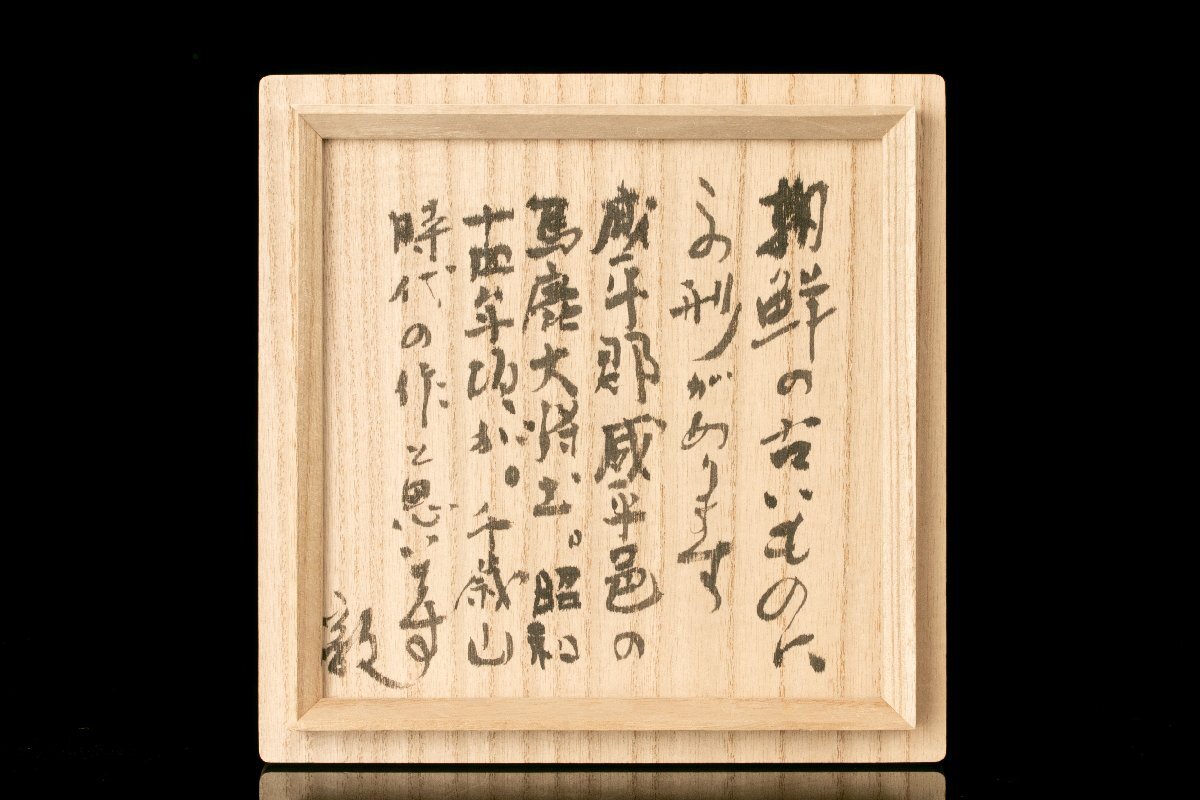 朝鮮の古いものに
この形があります
咸平郡咸平邑の
馬鹿大将土。昭和
十四年頃か。千歳山
時代の作と思います